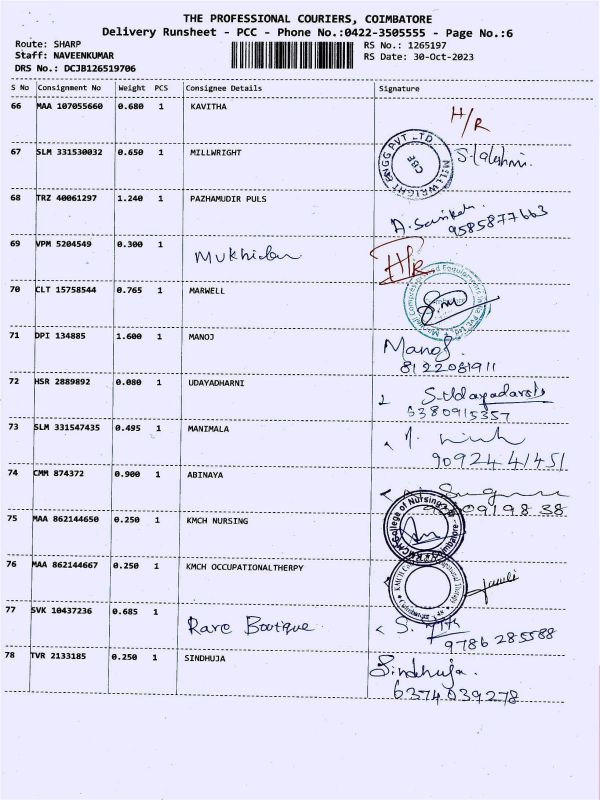 THE PROFESSIONAL COURIERS, COIMBATORE
Delivery Runsheet - PCC - Phone No.:0422-3505555 - Page No.:6
Route: SHARP RS No.: 1265197
Staff: NAVEENKUMAR RS Date: 30-Oct-2023
DRS No.: DCJB126519706
S No Consignment No Weight PCS Consignee Details Signature
66 MAA 107055660 0.680 1 KAVITHA H/R
67 SLM 331530032 0.650 1 MILLWRIGHT
68 TRZ 40061297 1.240 1 PAZHAMUDIR PULS
9585877663
69 VPM 5204549 0.300 1 Mukhilan H/R
70 CLT 15758544 0.765 1 MARWELL
71 DPI 134885 1.600 1 MANOJ Manoj
8122081911
72 HSR 2889892 0.080 1 UDAYADHARNI
73 SLM 331547435 0.495 1 MANIMALA
9092441451
74 CMM 874372 0.900 1 ABINAYA
75 MAA 862144650 0.250 1 KMCH NURSING
76 MAA 862144667 0.250 1 KMCH OCCUPATIONALTHERPY
77 SVK 10437236 0.685 1 Rare Boutique
9786285588
78 TVR 2133185 0.250 1 SINDHUJA Sindhuja.
6374039278